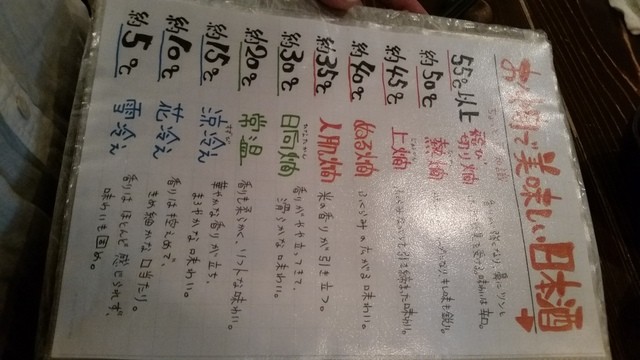 で美味しい日本酒
55℃以上 飛び切り燗
約50℃ 熱燗
約45℃ 上燗
約40℃ ぬる燗
ふくらみのある味わい。
約35℃ 人肌燗
米の香りが引き立つ。
約30℃ 日向燗
香りがやや立ってきて、
滑らかな味わい。
約20℃ 常温
香りも柔らかく、ソフトな味わい。
約15℃ 涼冷え
華やかな香りが立ち、
まろやかな味わい。
約10℃ 花冷え
香りは控えめで、
きめ細かな口当たり。
約5℃ 雪冷え
香りはほとんど感じられず、
味わいも固め。